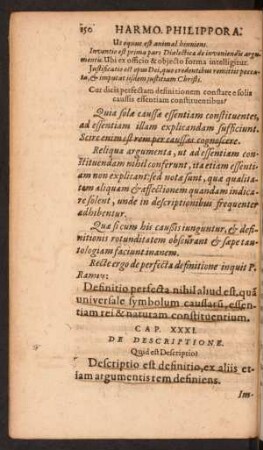 150 HARMO. PHILIPPORA:
Ut equus est animal hinniens.
Inventio est prima pars Dialectica de inveniendis argu-
mentis. Ubi ex officio & objecto forma intelligitur.
Justificatio est opus Dei, quo credentibus remittit pecca-
ta, & imputat iisdem justitiam Christi.
Cur dicis perfectam definitionem constare e solis
caussis essentiam constituentibus?
Quia solæ caussæ essentiam constituentes,
ad essentiam illam explicandam sufficiunt.
Scire enim est rem per caussas cognoscere.
Reliqua argumenta, ut ad essentiam con-
stituendam nihil conferunt, ita etiam essenti-
am non explicant: sed nota sunt, quæ qualita-
tem aliquam & affectionem quandam indica-
re solent, unde in descriptionibus frequenter
adhibentur.
Quæ si cum his caussis iunguntur, & defi-
nitionis rotunditatem obscurant & sæpe tau-
tologiam faciunt inanem.
Recte ergo de perfecta definitione inquit P.
Ramus:
Definitio perfecta nihil aliud est, quã
universale symbolum caussarũ, essen-
tiam rei & naturam constituentium.
CAP. XXXI.
DE DESCRIPTIONE.
Quid est Descriptio?
Descriptio est definitio, ex aliis et-
iam argumentis rem definiens.
Im-